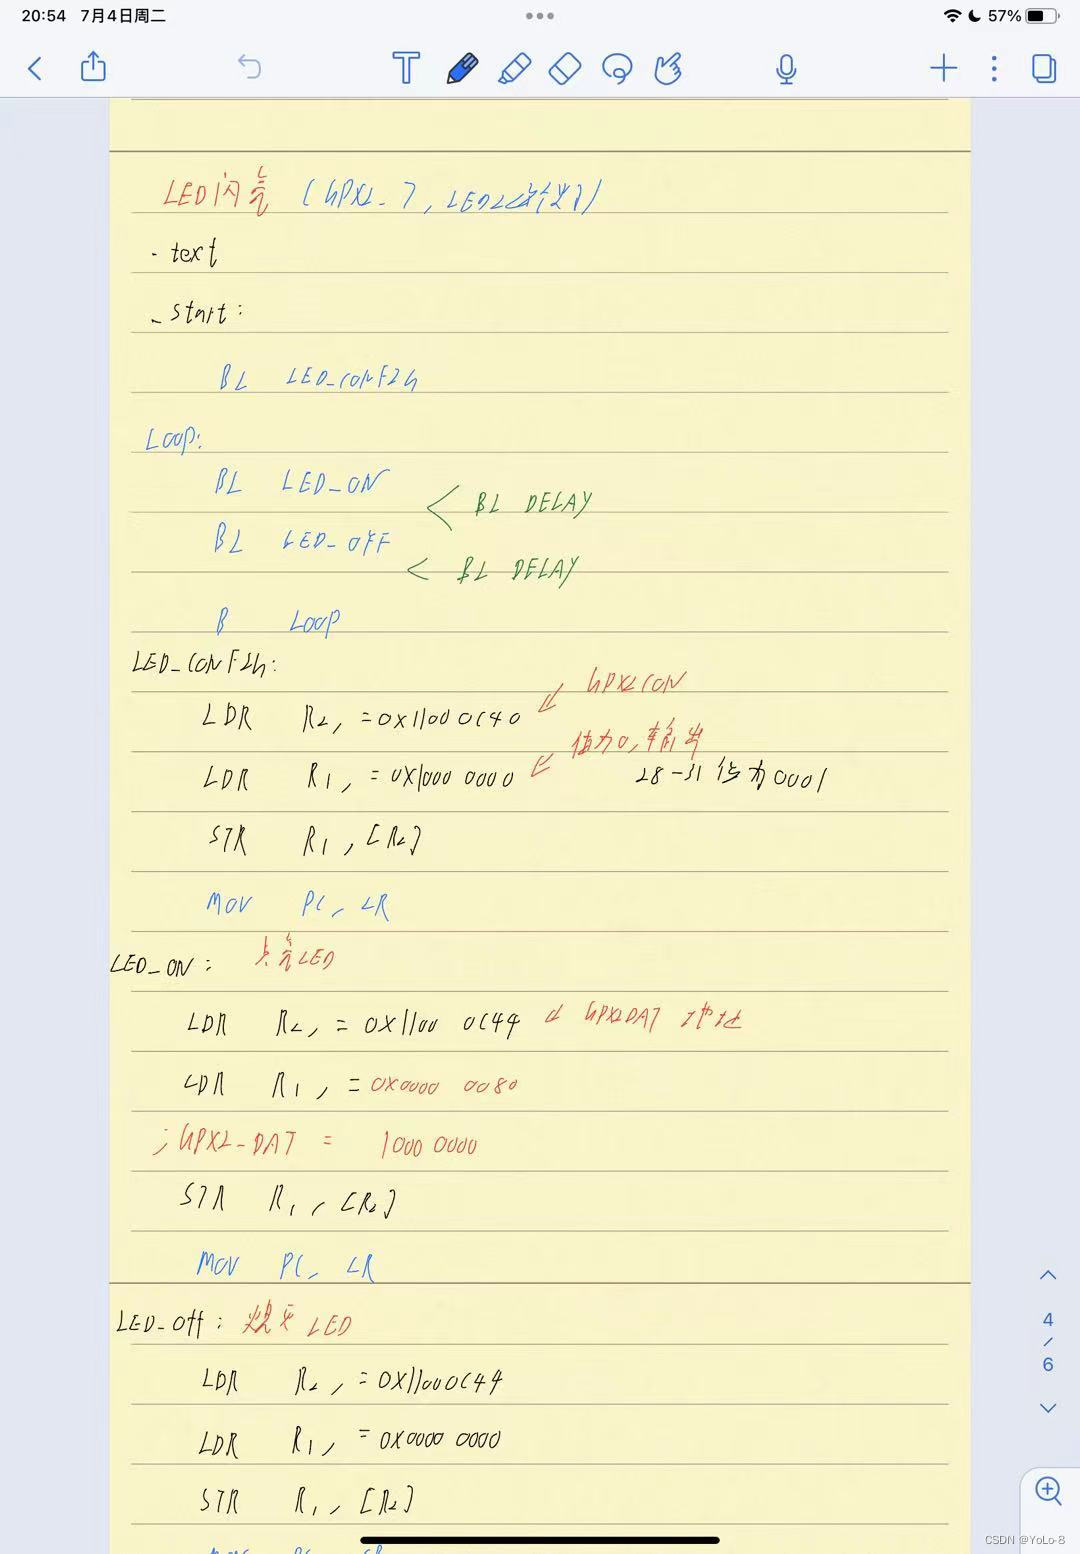 20:54 7月4日周二
57%
LED闪亮 (GPX2_7, LED2
.text
_start:
BL LED_CONFIG
LOOP:
BL LED_ON
< BL DELAY
BL LED_OFF
< BL DELAY
B LOOP
LED_CONFIG:
GPX2CON
LDR R2, =0x11000C40
值为0,输出
LDR R1, =0x1000 0000
28-31位为0001
STR R1, [R2]
MOV PC, LR
LED_ON: 点亮LED
LDR R2, =0x1100 0C44 GPX2DAT 地址
LDR R1, =0x0000 0080
;GPX2_DAT = 1000 0000
STR R1, [R2]
MOV PC, LR
LED_off: 熄灭LED
LDR R2, =0x11000C44
LDR R1, =0x0000 0000
STR R1, [R2]
4
/
6
CSDN @YoLo-8